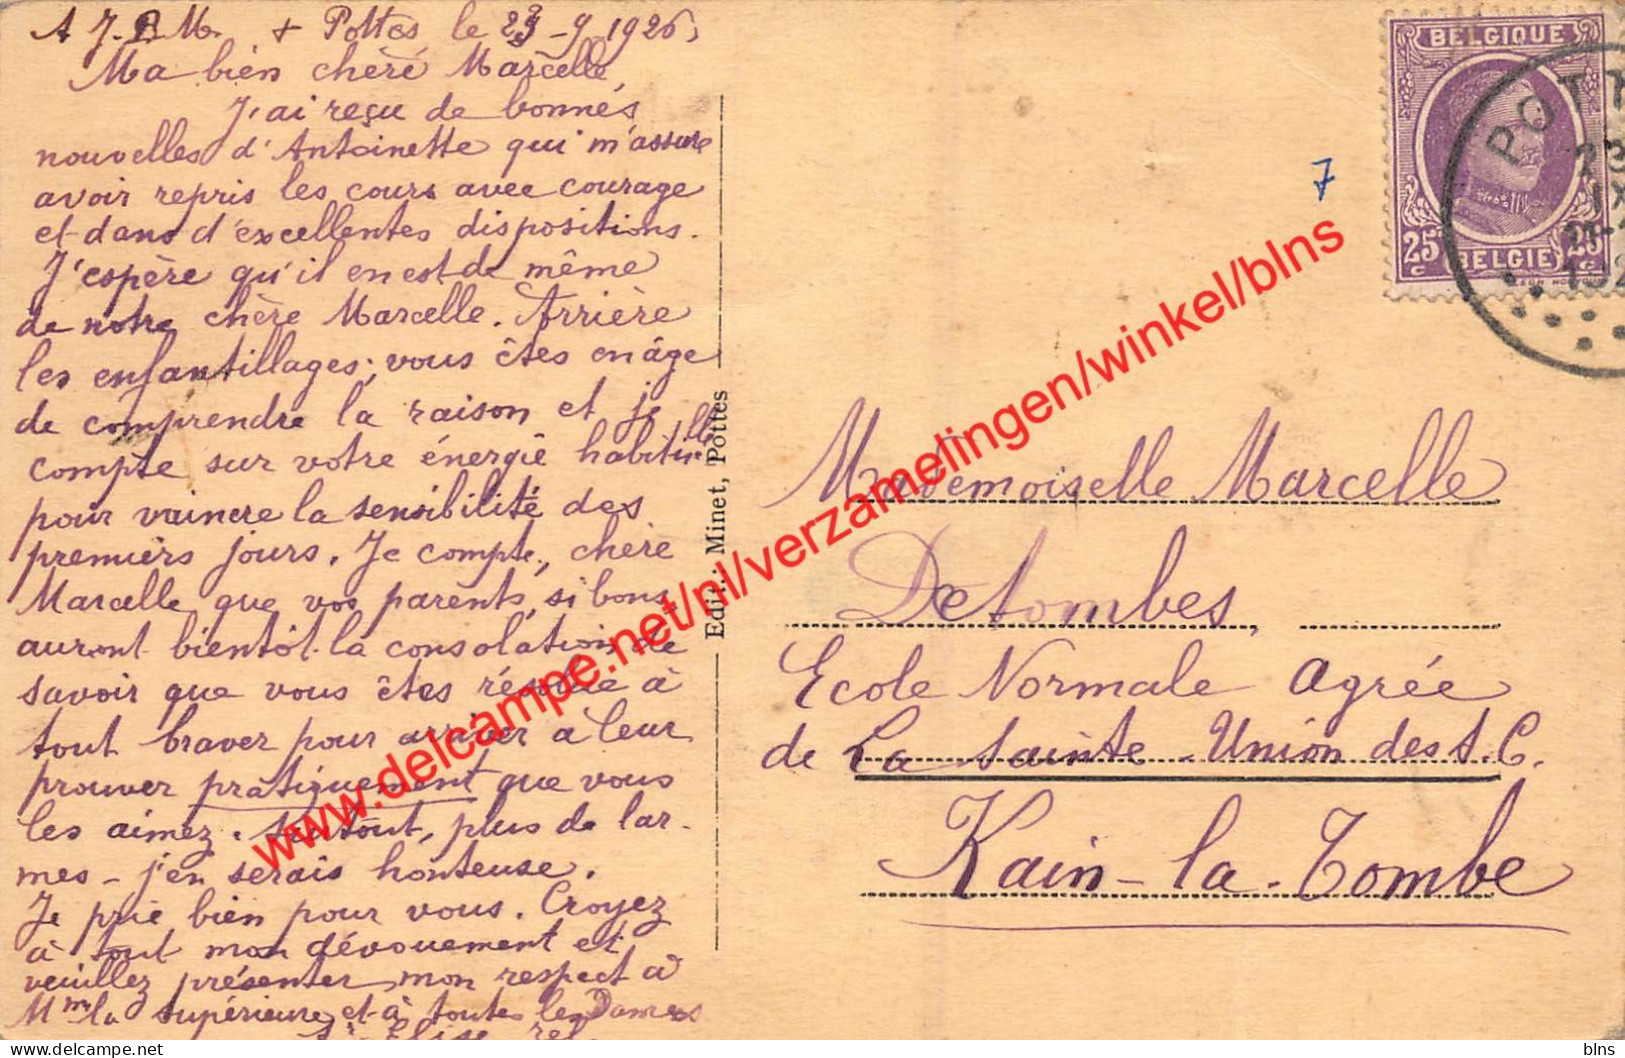 A J. B. M. + Pottes le 23-9-1926,
Ma bien chère Marcelle,
J'ai reçu de bonnes
nouvelles d'Antoinette qui m'assure
avoir repris les cours avec courage
et dans d'excellentes dispositions.
J'espère qu'il en est de même
de notre chère Marcelle. Arrière
les enfantillages; vous êtes en âge
de comprendre la raison et je
compte sur votre énergie habituelle
pour vaincre la sensibilité des
premiers jours. Je compte, chère
Marcelle, que vos parents, si bons,
auront bientôt la consolation de
savoir que vous êtes résolue à
tout braver pour arriver à leur
prouver pratiquement que vous
les aimez. Surtout, plus de lar-
mes - j'en serais honteuse.
Je prie bien pour vous. Croyez
à tout mon dévouement et
veuillez présenter mon respect à
Mme la Supérieure et à toutes les Dames
Sr Elise rel
Edit.: Minet, Pottes
BELGIQUE
25c 25c
BELGIE
POTT
23
IX
7
Mademoiselle Marcelle
Detombes,
Ecole Normale agrée
de La Sainte-Union des S.C.
Kain-la-Tombe
www.delcampe.net/nl/verzamelingen/winkel/blns
blns